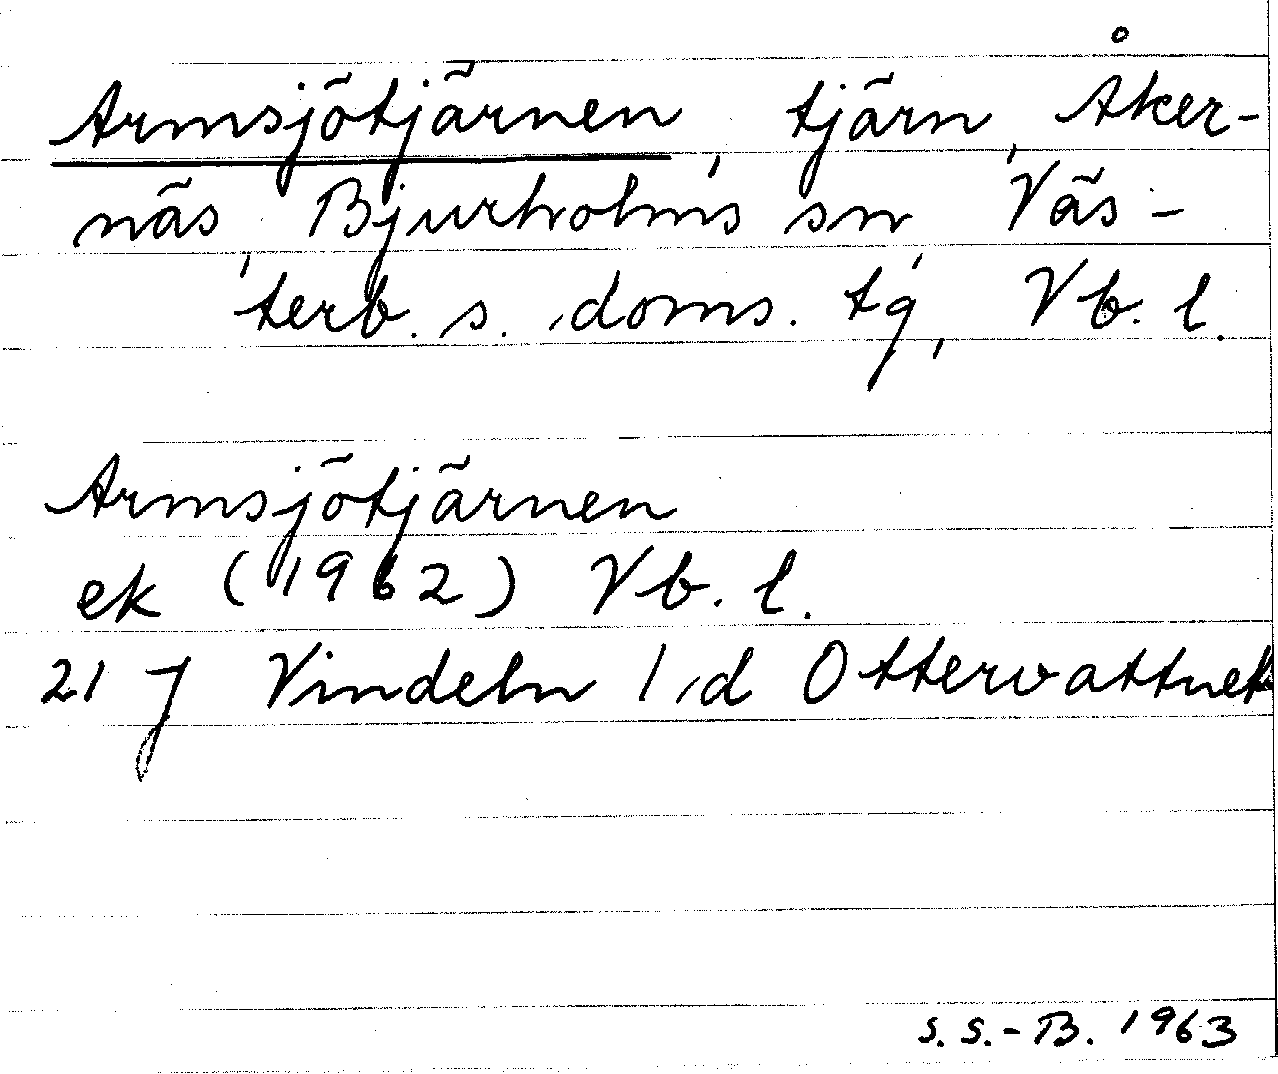 Armsjötjärnen, tjärn, Åker-
näs, Bjurholms sn, Väs-
terb. s. doms. tg, Vb. l.
Armsjötjärnen
ek (1962) Vb. l.
21 J Vindeln 1 d Ottervattnet
S. S.-B. 1963